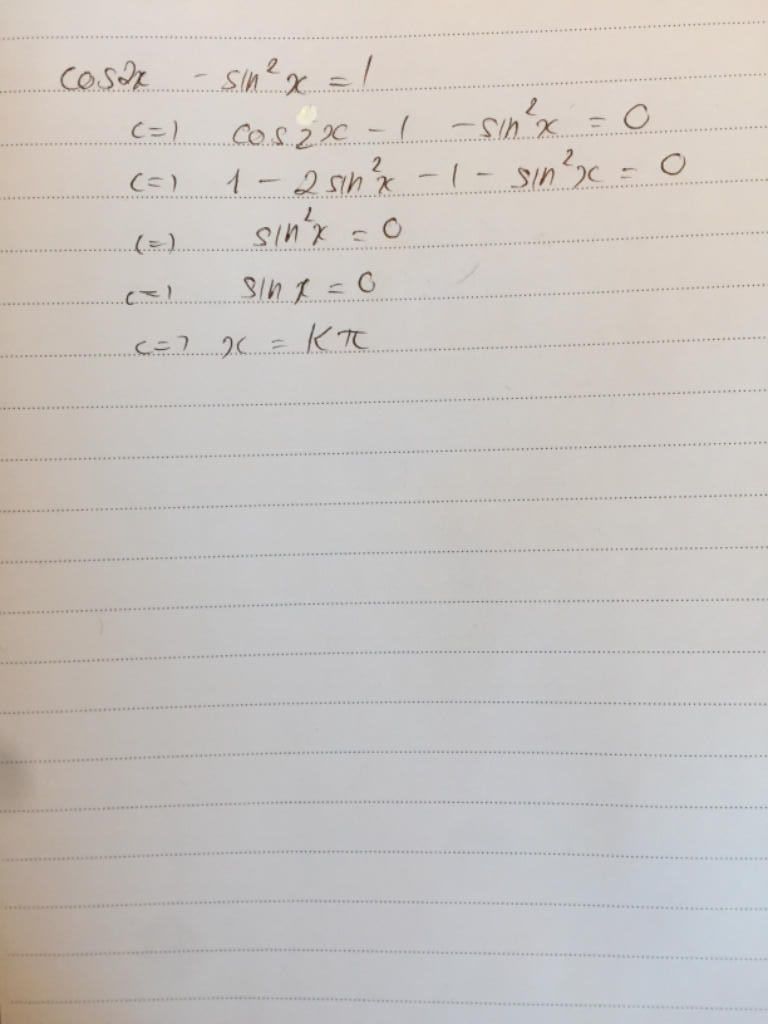 cos2x - sin²x = 1
<=> cos2x - 1 - sin²x = 0
<=> 1 - 2sin²x - 1 - sin²x = 0
<=> sin²x = 0
<=> sin x = 0
<=> x = Kπ